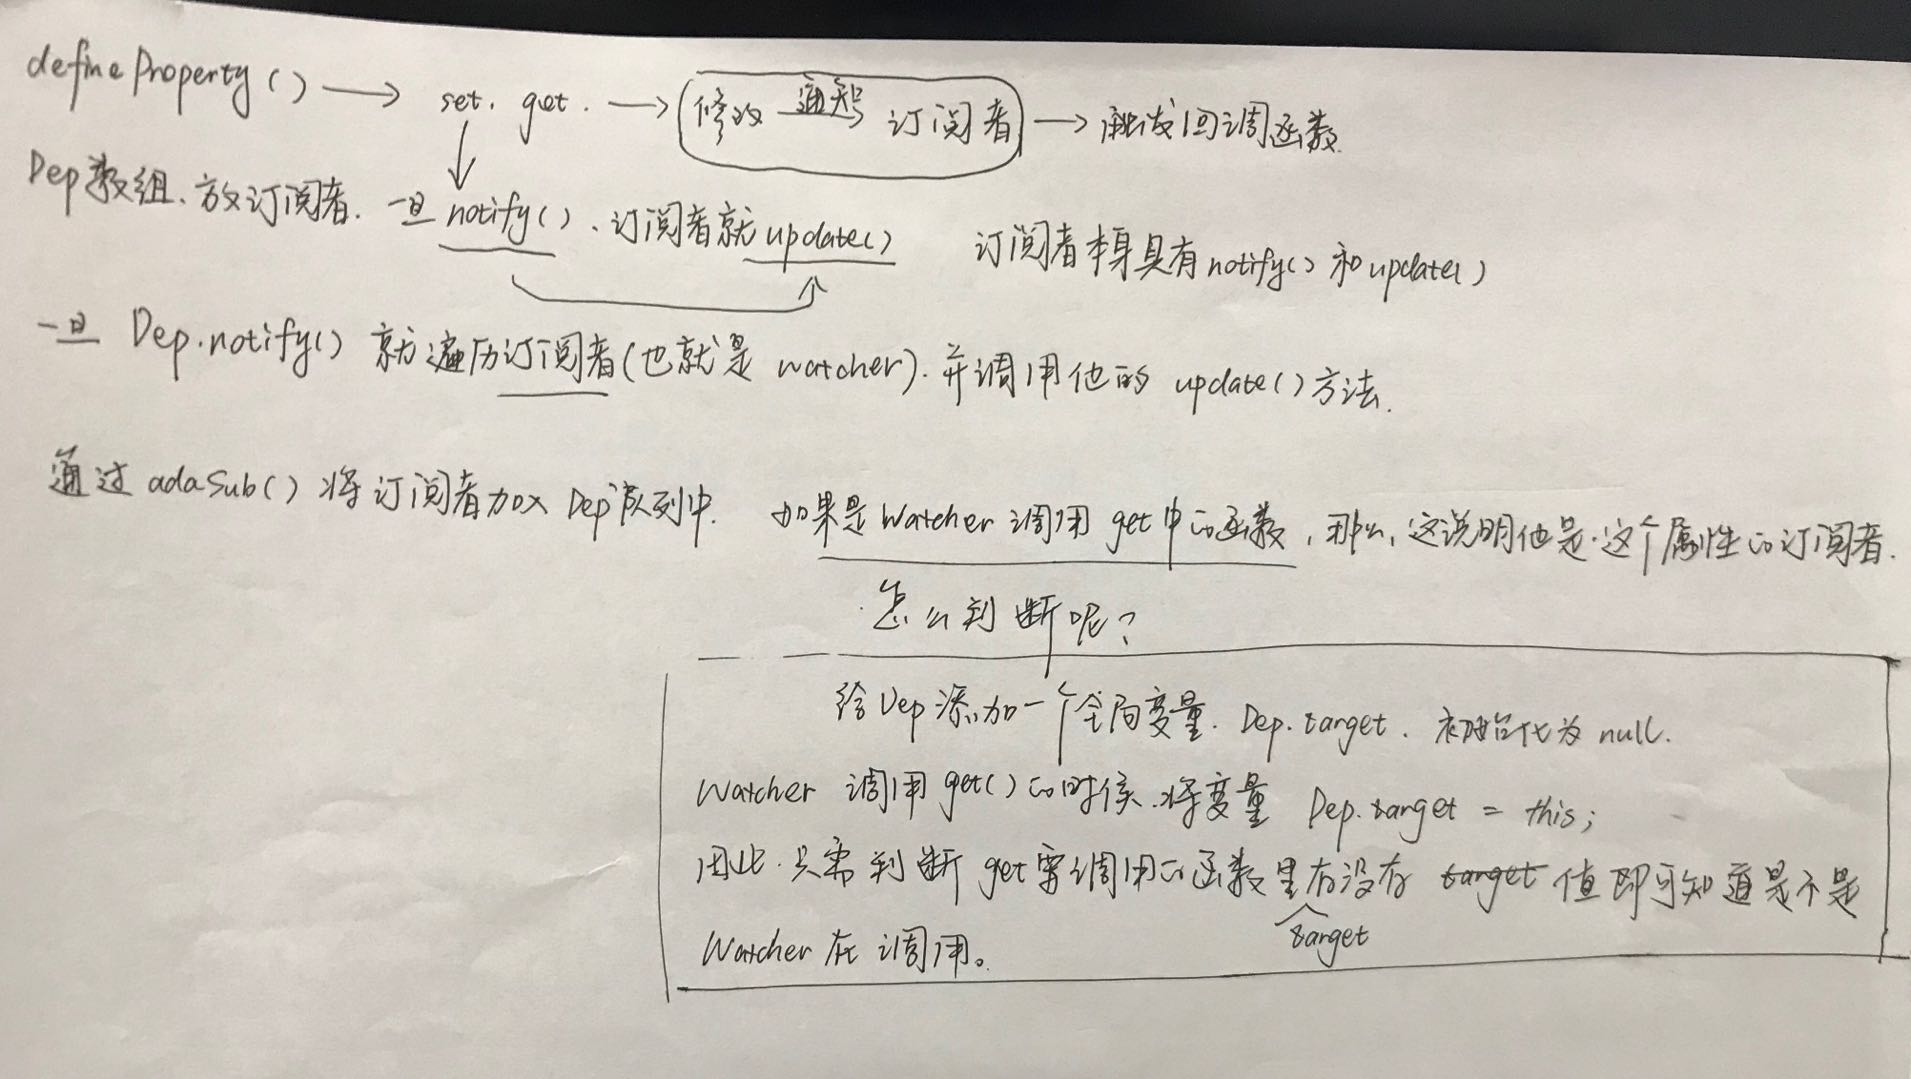 defineProperty() → set. get. → 修改 通知→ 订阅者 → 触发回调函数.
Dep数组、放订阅者. 一旦notify()、订阅者就update() 订阅者本身具有notify()和update()
一旦 Dep.notify() 就遍历订阅者(也就是 watcher). 并调用他的 update()方法.
通过 adaSub() 将订阅者加入 Dep队列中. 如果是Watcher 调用 get中的函数, 那么, 这说明他是这个属性的订阅者.
怎么判断呢?
给Dep添加一个全局变量. Dep.target. 初始化为 null.
Watcher 调用 get()的时候.将变量 Dep.target = this;
因此.只需判断 get要调用的函数里有没有 target 值即可知道是不是
target
Watcher 在调用。